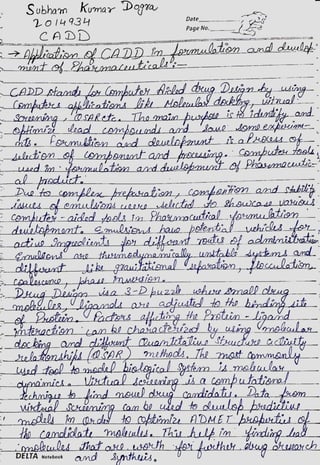 Subham Kumar Dogra
2014934
CADD
Date
Page No.
→ Application of CADD in formulation and develop-
ment of Pharmaceuticals :-
CADD stands for Computer Aided drug Design by using
Computers applications like Molecular docking, virtual
screening, QSAR etc. The main purpose is to identify and
optimize lead compounds and save some experim-
ents. Formulation and development is a Process of
selection of component and processing. Computer tools
used in formulation and development of Pharmaceutic-
al product.
Due to complex preparation, composition and stability
issues of emulsions were selected to showcase various
computer-aided tools in Pharmaceutial formulation
development. Emulsions have potential vehicles for
active Ingredients for different routes of administration
Emulsions are thermodynamically unstable systems and
different like gravitational separation, flocculation
coalescence, phase Inversion.
Drug Design is a 3-D puzzle where small drug
molecules, ligands are adjusted to the binding site
of Protein. Factors affecting the Protein - Ligand
interaction can be characterized by using molecular
docking and different Quantitative structure activity
relationships (QSAR) methods. The most commonly
used tool to model biological system is molecular
dynamics. Virtual screening is a computational
technique to find novel drug candidates. Data from
virtual screening can be used to develop predictive
models in order to optimize ADMET properties of
the candidate molecules. This help in finding lead
molecules that are worth for further drug research
and synthesis.
DELTA Notebook